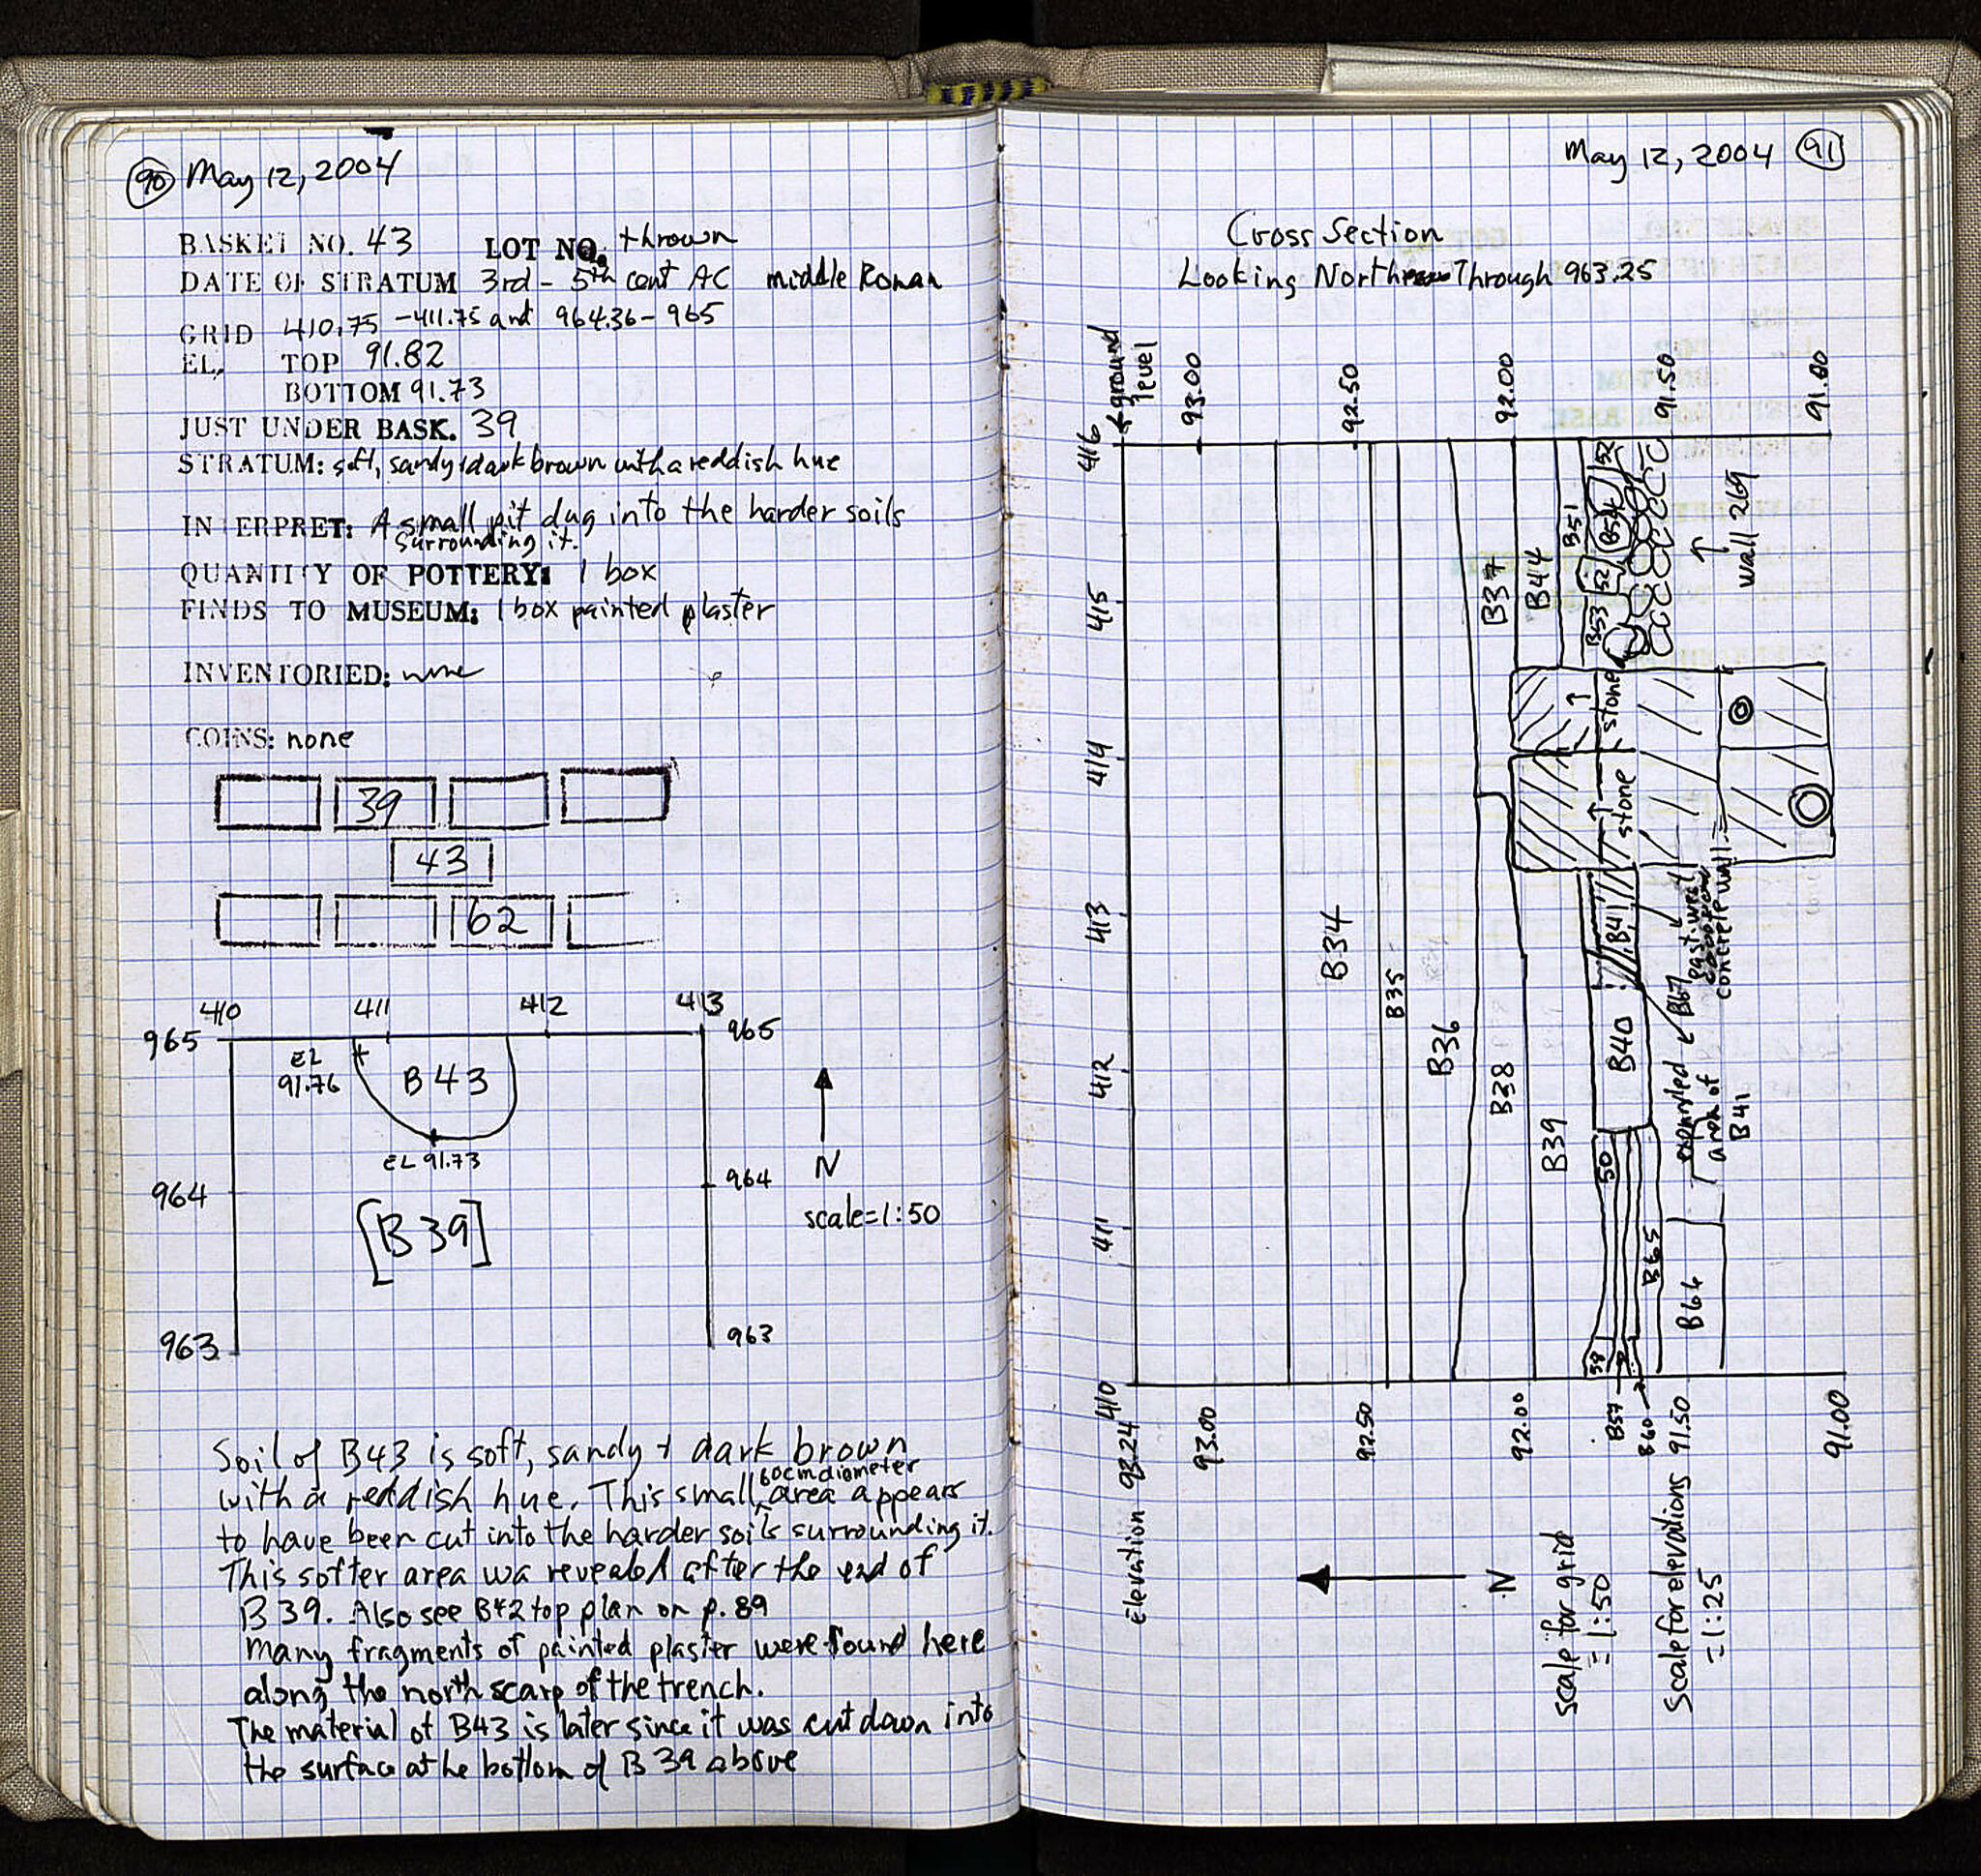 90 May 12, 2004
BASKET NO. 43 LOT NO. thrown
DATE OF STRATUM 3rd - 5th cent AC middle Roman
GRID 410.75 - 411.75 and 964.36 - 965
EL. TOP 91.82
BOTTOM 91.73
JUST UNDER BASK. 39
STRATUM: soft, sandy + dark brown with a reddish hue
INTERPRET: A small pit dug into the harder soils
surrounding it.
QUANTITY OF POTTERY: 1 box
FINDS TO MUSEUM: 1 box painted plaster
INVENTORIED: none
COINS: none
39
43
62
410 411 412 413
965 965
EL
91.76
B 43
EL 91.73
964 964
N
scale = 1:50
[B 39]
963 963
Soil of B43 is soft, sandy + dark brown
with a reddish hue. This small 60cm diameter area appears
to have been cut into the harder soils surrounding it.
This softer area wa revealed after the end of
B 39. Also see B42 top plan on p. 89
Many fragments of painted plaster were found here
along the north scarp of the trench.
The material of B43 is later since it was cut down into
the surface at he bottom of B 39 above
May 12, 2004 91
Cross Section
Looking North Through 963.25
ground
level
93.00
92.50
92.00
91.50
91.00
416
415
414
413
412
411
410
B34
B35
B36
B37
B38
B39
B44
B51
B53
52
B54
52
wall 269
stone
stone
B41
B40
B67
East west
concrete wall
expanded
area of
B41
50
B65
B64
58
B57
B60
elevation 93.24
93.00
92.50
92.00
91.50
91.00
N
scale for grid
= 1:50
scale for elevations
= 1:25